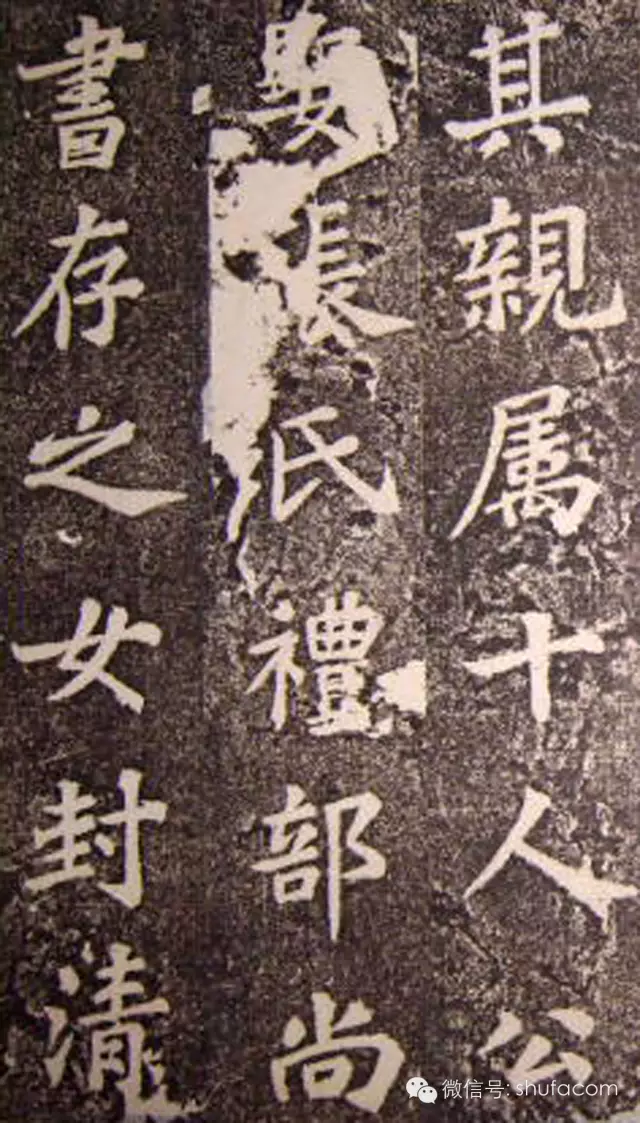 其親属十人公
娶張氏禮部尚
書存之女封清
微信号: shufacom